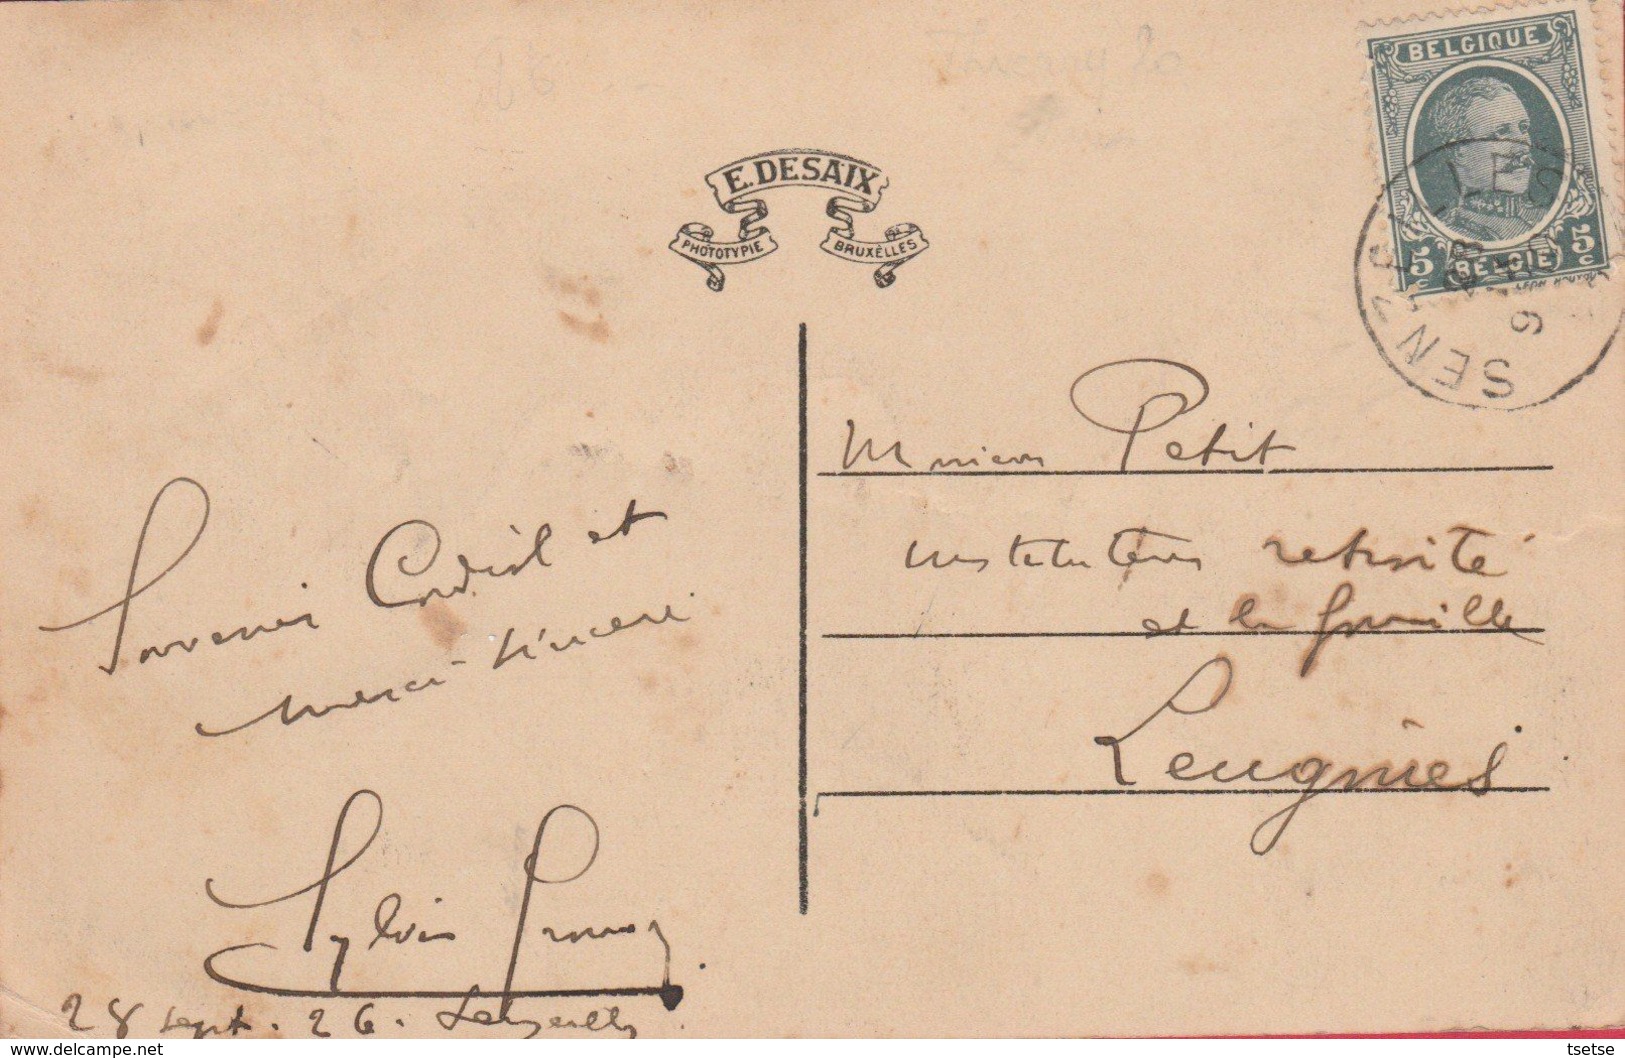 BELGIQUE
5 c 5 c
BELGIË
SENZEILLES
E. DESAIX
PHOTOTYPIE BRUXELLES
Monsieur Petit
instituteur retraité
et la famille
Leugnies
Souvenir Cordial et
merci sincère
Sylvain
28 sept. 26. Senzeilles
© tsetse